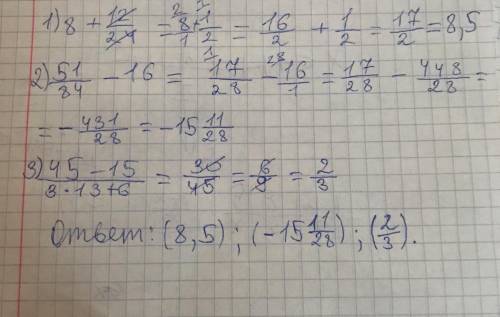 1) 8 + 12/24 = 8/1 + 1/2 = 16/2 + 1/2 = 17/2 = 8,5
2) 51/84 - 16 = 17/28 - 16/1 = 17/28 - 448/28 =
= - 431/28 = -15 11/28
3) 45 - 15/3·13+6 = 30/45 = 6/9 = 2/3
Ответ: (8,5) ; (-15 11/28) ; (2/3).